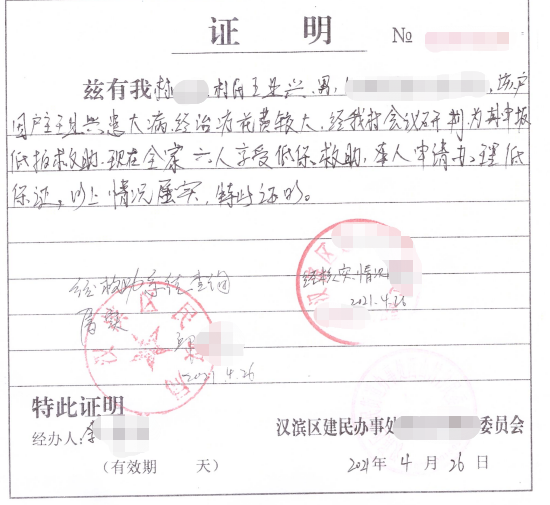 证 明
№
兹有我村村民王显兴，男，该户
因户主王显兴患大病，经治疗花费较大，经我村会议研判为其申报
低保救助，现在全家六人享受低保救助，本人申请办理低
保证。以上情况属实，特此证明。
经救助系统查询
属实
2021.4.26
经核实情况
2021.4.26
特此证明
经办人：余
汉滨区建民办事处 委员会
（有效期 天）
2021年 4 月 26 日